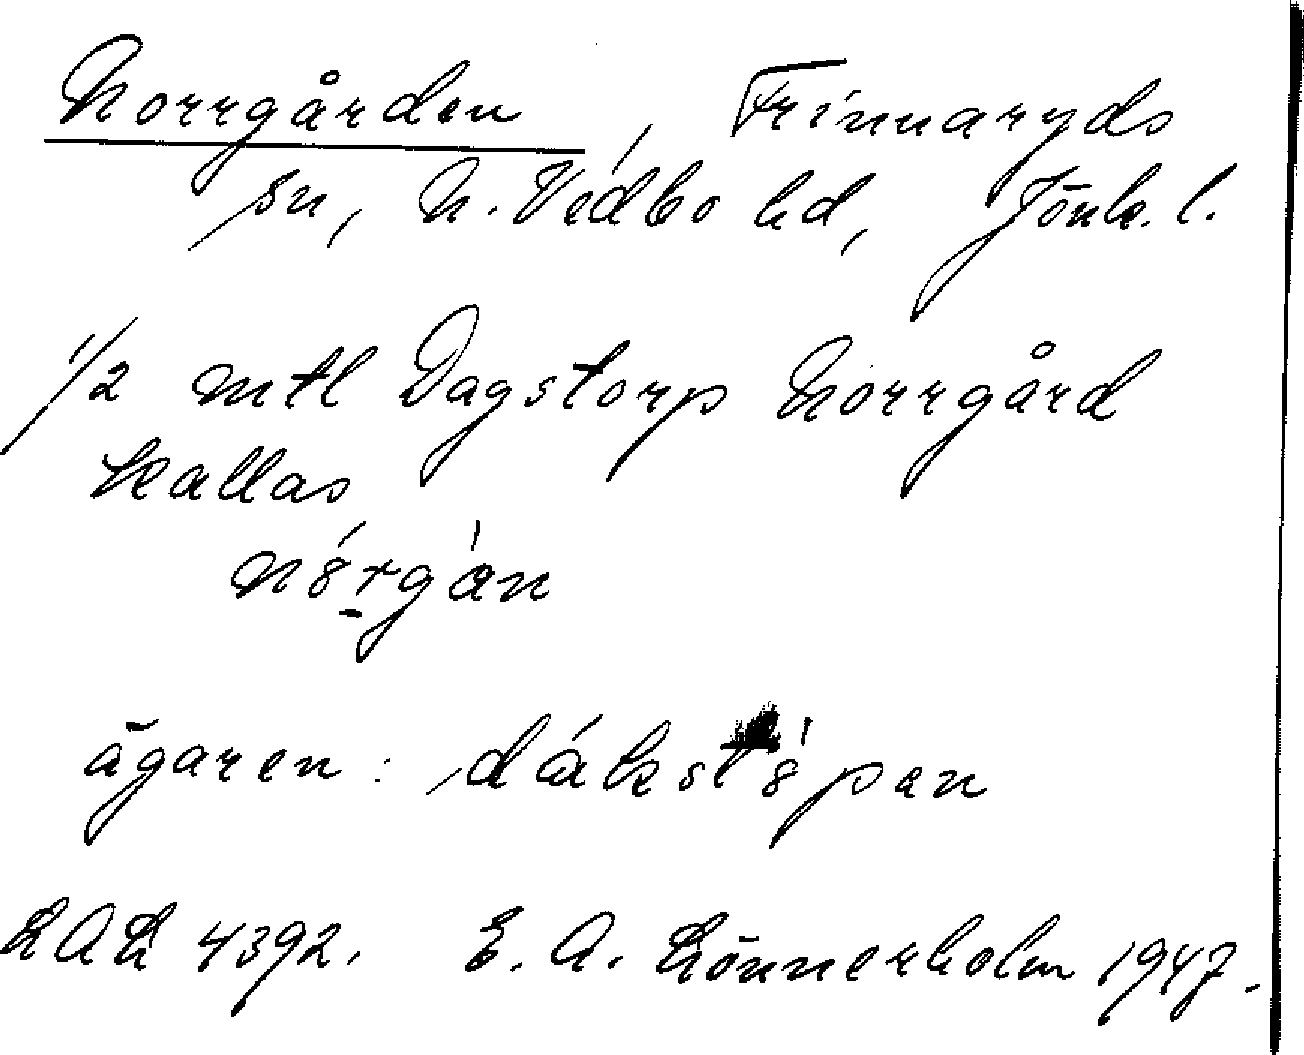 Norrgården, Frinnaryds
sn, N. Vedbo hd, Jönk. l.
1/2 mtl Dagstorp Norrgård
kallas
ägaren:
LAL 4392. E. A. Lönnerholm 1947.